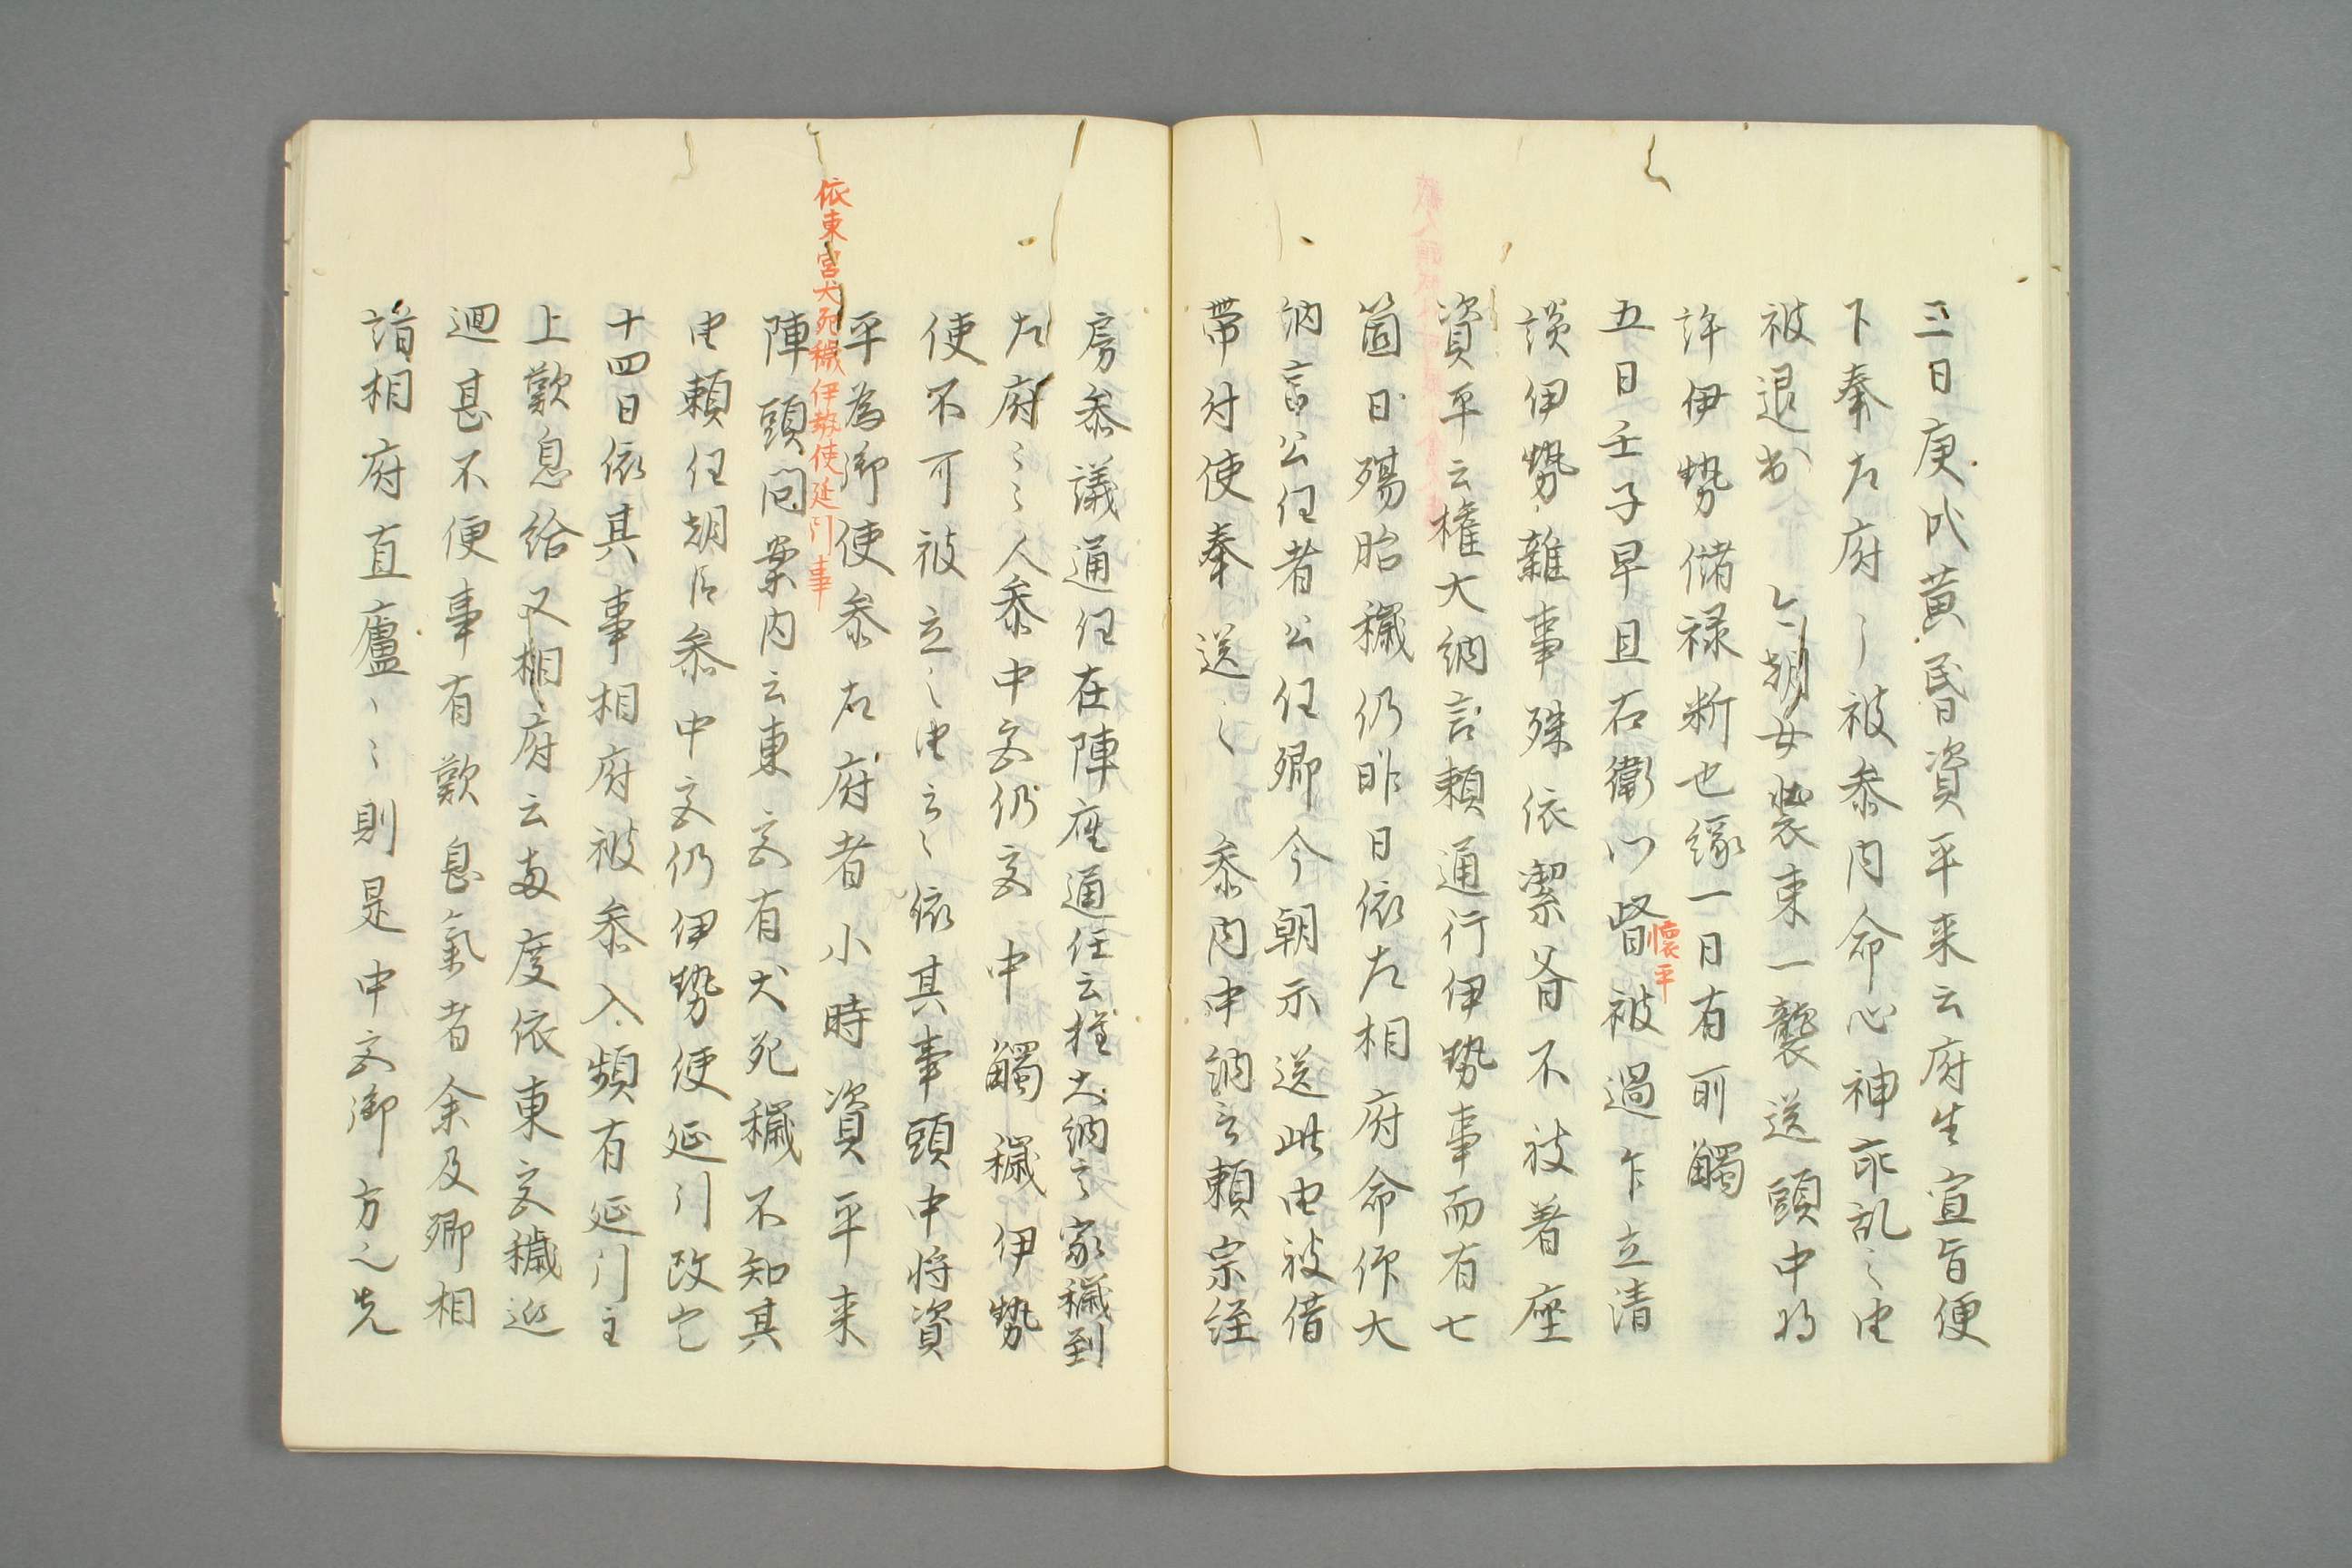 三日庚戌黄昏資平来云府生宣旨便
下奉左府〻被参内命心神乖乱之由
被退出 今朝女装束一襲送頭中将
許伊勢儲禄断也縁一日有所觸
五日壬子早旦右衛门督被過乍立清
懐平
談伊勢雑事殊依潔斎不被着座
資平云権大納言頼通行伊勢事而有七
箇日殤胎穢仍昨日依左相府命仰大
納言公任者公任卿今朝示送此由被借
帯付使奉送之 参内中納言頼宗経
房参議通任在陣座通任云権大納言家穢到
左府〻〻人参中宮仍宮中觸穢伊勢
使不可被立之由云〻依其事頭中将資
平為御使参左府者小時資平来
依東宮犬死穢伊勢使延引事
陣頭問案内云東宮有犬死穢不知其
由頼任朝臣参中宮仍伊勢使延引改定
十四日依其事相府被参入頻有延引主
上歎息給又相府云両度依東宮穢延
廻甚不便事有歎息氣者余及卿相
詣相府直廬〻〻則是中宮御方之先